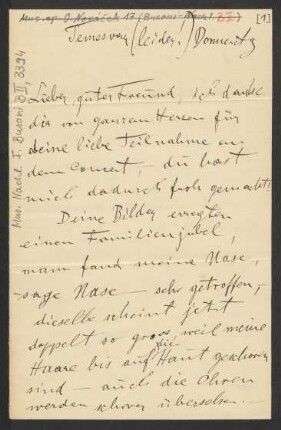 Mus. ep. O. Nováček 17 (Busoni-Nachl. B II) [1]
Mus. Nachl. F. Busoni B II, 3394
Temesvar (leider!) Donnerstg
Lieber, guter Freund, ich danke
dir von ganzem Herzen für
deine liebe Teilnahme an
dem Concert – du hast
mich dadurch froh gemacht!
Deine Bilder erregten
einen Familienjubel,
mann fand meine Nase,
– sage Nase – sehr getroffen;
dieselbe scheint jetzt
doppelt so gross, weil meine
Haare bis auf die Haut geschoren
sind – auch die Ohren
werden schwer übersehen. –